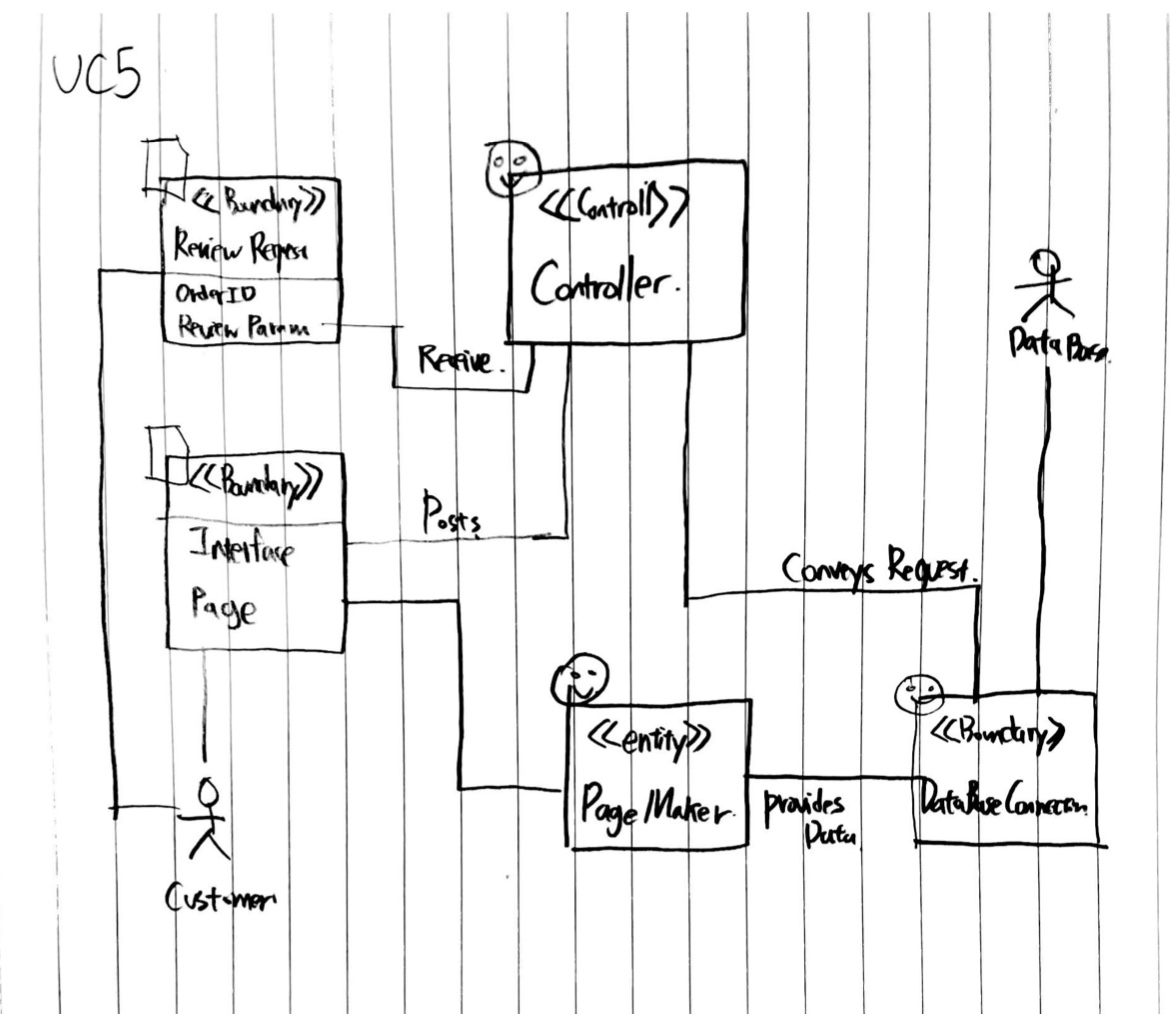 UC5
<<Boundary>>
Review Reqest
OrderID
Review Param
<<Controll>>
Controller.
Receive.
Data Base
<<Boundary>>
Interface
Page
Posts
Conveys Request.
<<entity>>
Page Maker.
provides
Data
<<Boundary>>
DataBase Connection
Customer